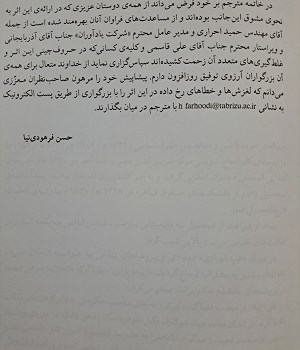 در خاتمه مترجم بر خود فرض می‌داند از همه‌ی دوستان عزیزی که در ارائه‌ی این اثر به
نحوی مشوق این‌جانب بوده‌اند و از مساعدت‌های فراوان آنان بهره‌مند شده است از جمله
آقای مهندس حمید احراری و مدیر عامل محترم «شرکت یادآوران» جناب آقای آذربایجانی
و ویراستار محترم جناب آقای علی قاسمی و کلیه‌ی کسانی‌که در حروف‌چینی این اثر و
غلط‌گیری‌های متعدد آن زحمت کشیده‌اند سپاس‌گزاری نماید از خداوند متعال برای همه‌ی
آن بزرگواران آرزوی توفیق روزافزون دارم. پیشاپیش خود را مرهون صاحب‌نظران معززی
می‌دانم که لغزش‌ها و خطاهای رخ داده در این اثر را با بزرگواری از طریق پست الکترونیک
به نشانی h farhoodi@tabrizu.ac.ir با مترجم در میان بگذارند.
حسن فرهودی‌نیا